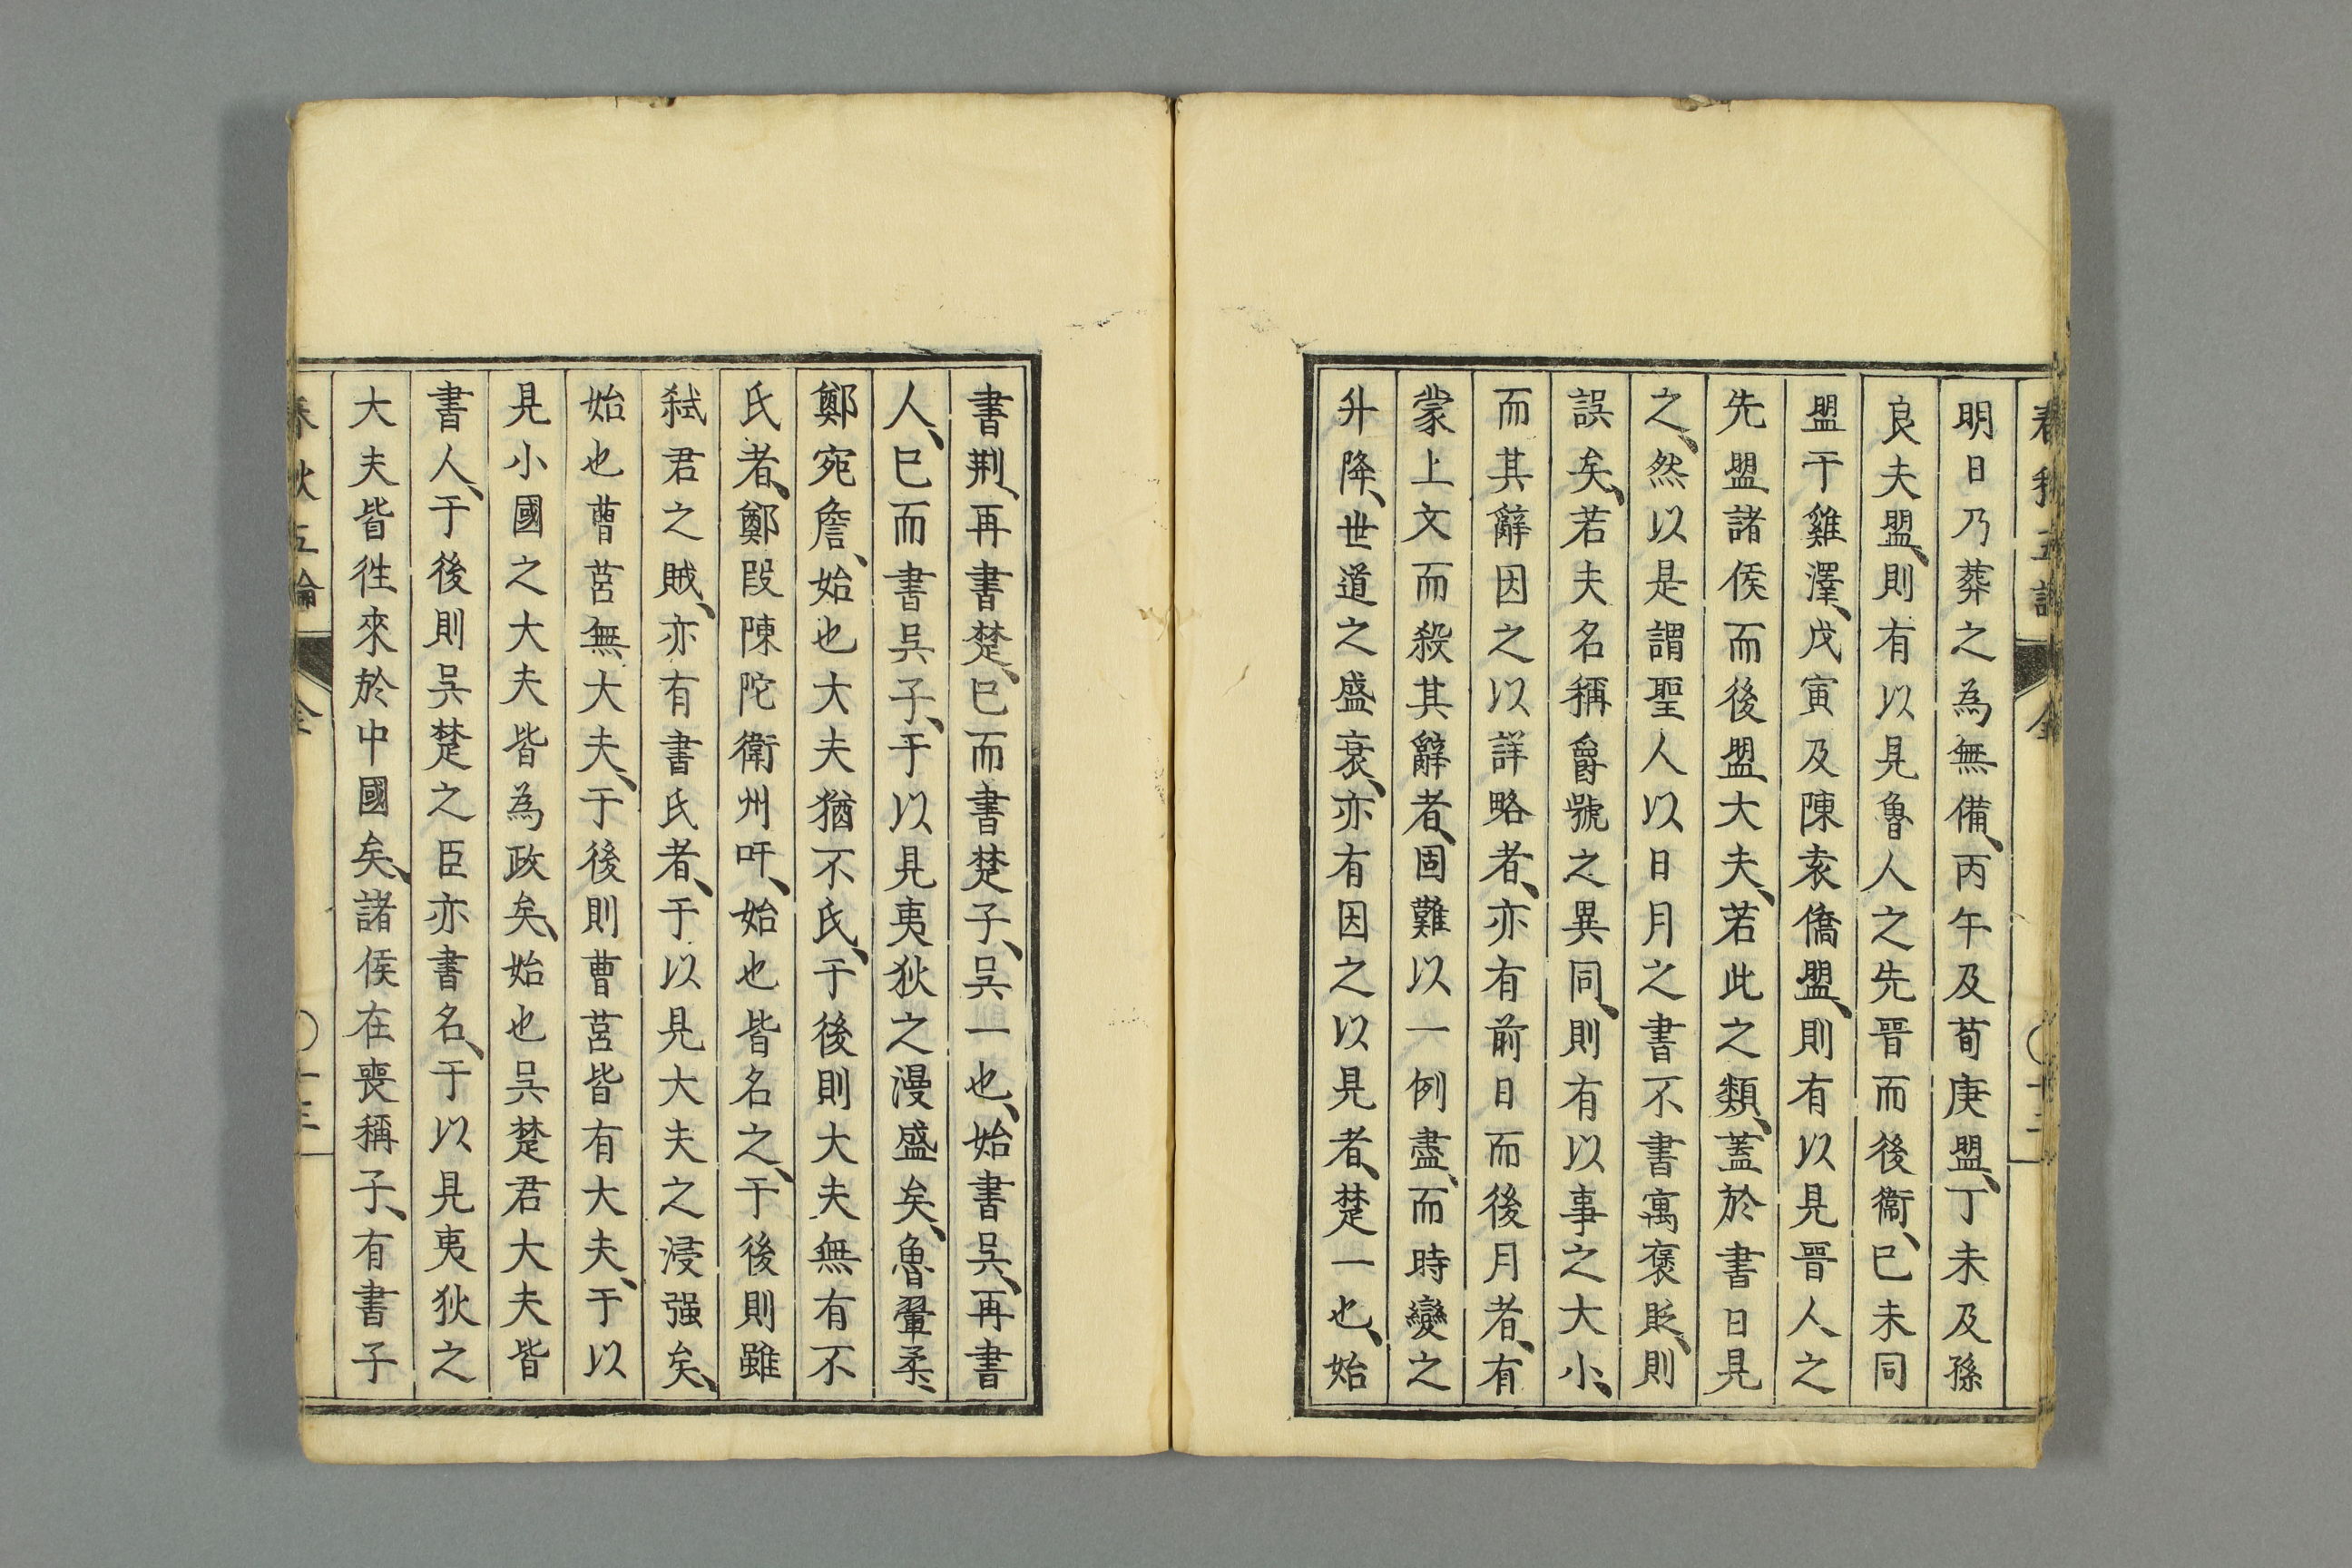 明日乃葬之為無備、丙午及荀庚盟、丁未及孫
良夫盟、則有以見魯人之先晉而後衞、巳未同
盟于雞澤、戊寅及陳袁僑盟、則有以見晉人之
先盟諸侯而後盟大夫、若此之類、蓋於書日見
之、然以是謂聖人以日月之書不書寓褒貶、則
誤矣、若夫名稱爵號之異同、則有以事之大小、
而其辭因之以詳略者、亦有前日而後月者、有
蒙上文而殺其辭者、固難以一例盡、而時變之
升降、世道之盛衰、亦有因之以見者、楚一也、始
書荆、再書楚、巳而書楚子、吳一也、始書吳、再書
人、巳而書吳子、于以見夷狄之漫盛矣、魯翬柔、
鄭宛詹、始也大夫猶不氏、于後則大夫無有不
氏者、鄭段陳陀衛州吁、始也皆名之、于後則雖
弑君之賊、亦有書氏者、于以見大夫之浸强矣、
始也曹莒無大夫、于後則曹莒皆有大夫、于以
見小國之大夫皆為政矣、始也吳楚君大夫皆
書人、于後則吳楚之臣亦書名、于以見夷狄之
大夫皆徃來於中國矣、諸侯在喪稱子、有書子